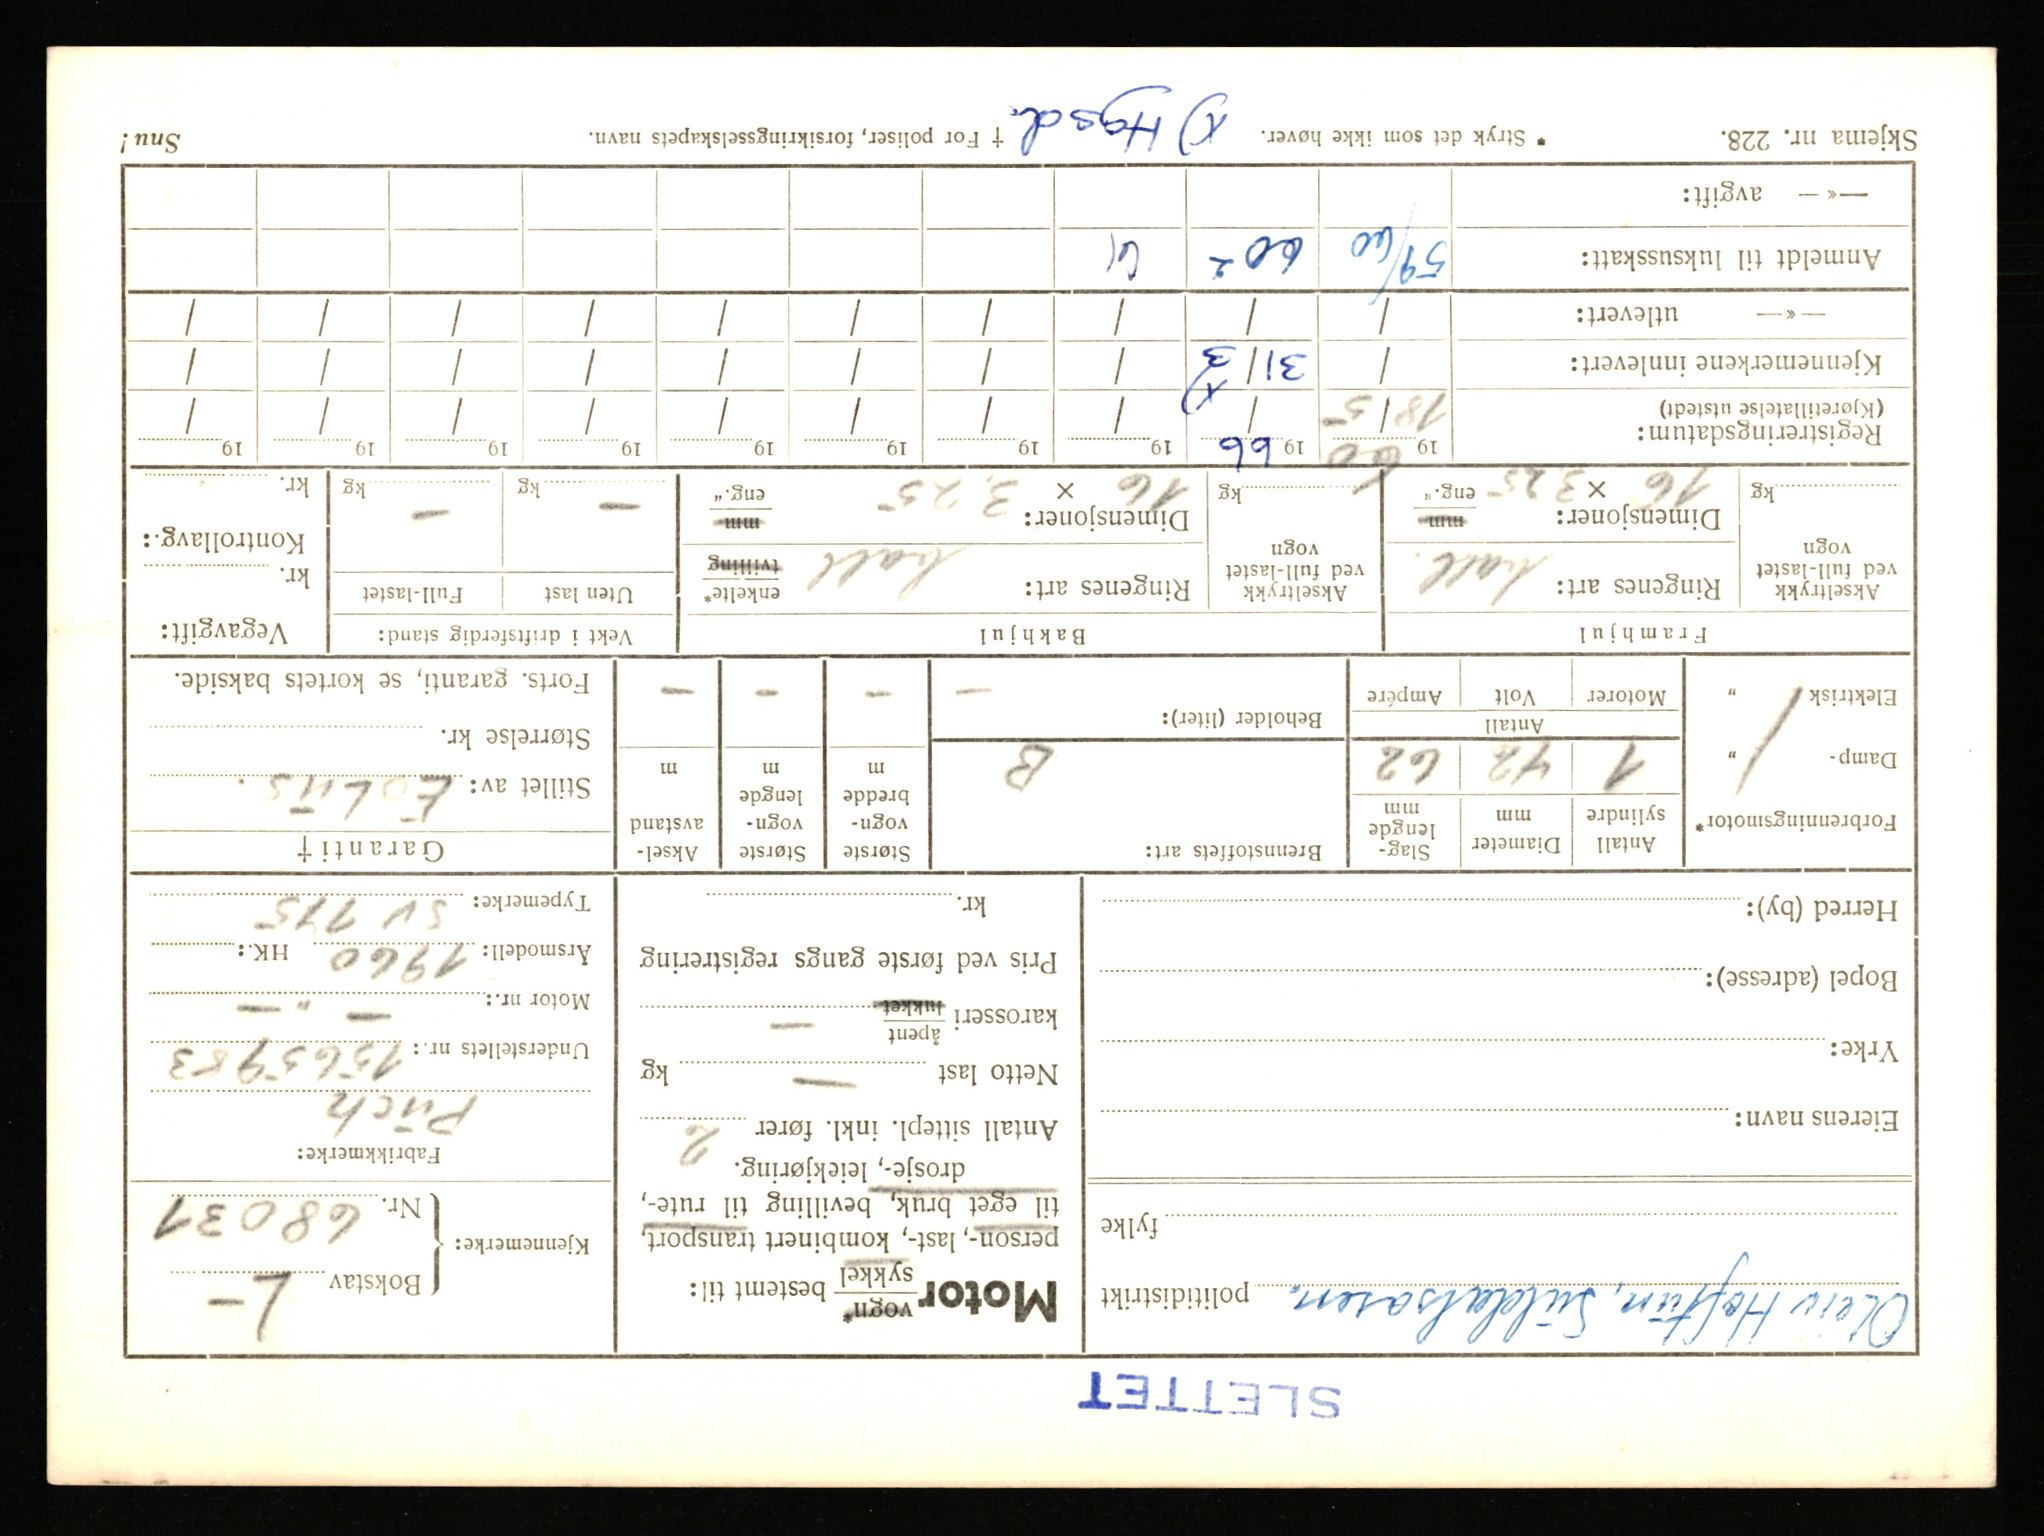 SLETTET
Oleiv Høftun, Suldalsosen. politidistrikt
fylke
Eierens navn:
Yrke:
Bopel (adresse):
Herred (by):
Motor vogn* sykkel bestemt til:
person-, last-, kombinert transport,
til eget bruk, bevilling til rute-,
drosje-, leiekjøring.
Antall sittepl. inkl. fører 2
Netto last — kg
karosseri åpent lukket —
Pris ved første gangs registrering
kr.
Kjennemerke: Bokstav L-
Nr. 68031
Fabrikkmerke:
Puch
Understellets nr.: 15659583
Motor nr.: — " —
Årsmodell: 1960 HK.:
Typemerke: SV 175
Forbrenningsmotor*
Damp- "
Elektrisk "
Antall sylindre Diameter mm Slag-lengde mm
1 42 62
Antall
Motorer Volt Ampére
Brennstoffets art:
B
Beholder (liter): —
Største vogn-bredde m —
Største vogn-lengde m —
Aksel-avstand m —
Garanti †
Stillet av: Eolus.
Størrelse kr.
Forts. garanti, se kortets bakside.
Framhjul
Akseltrykk ved full-lastet vogn kg
Ringenes art: ball.
Dimensjoner: 16 × 3,25 mm eng."
Bakhjul
Akseltrykk ved full-lastet vogn kg
Ringenes art: ball enkelte* tvilling
Dimensjoner: 16 × 3,25 mm eng."
Vekt i driftsferdig stand:
Uten last Full-lastet
— kg — kg
Vegavgift:
kr.
Kontrollavg.:
kr.
Registreringsdatum: 19 60 19 66 19 19 19 19 19 19 19
(Kjøretillatelse utstedt) 18/5 / / / / / / / /
Kjennemerkene innlevert: / 31/3 x) / / / / / / /
—«— utlevert: / / / / / / / / /
Anmeldt til luksusskatt: 59/60 60 2 61
—«— avgift:
Skjema nr. 228. * Stryk det som ikke høver. † For poliser, forsikringsselskapets navn. Snu!
x) Hgsd.